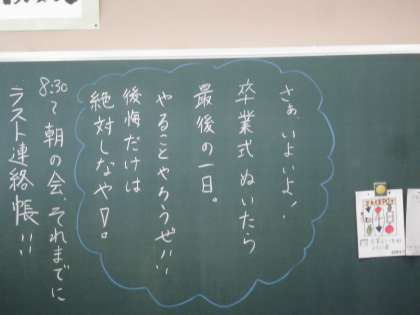 さぁ、いよいよ!
卒業式ぬいたら
最後の一日。
やることやろうぜ!!
後悔だけは
絶対しなや!。
8:30〜朝の会、それまでに
ラスト連絡帳!!!